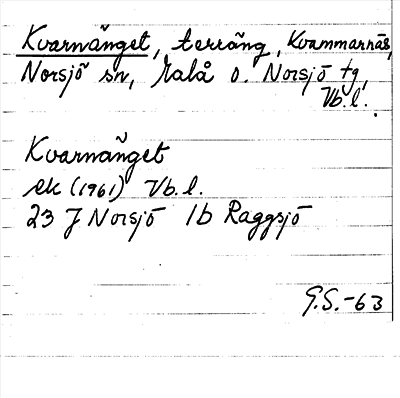 Kvarnänget, terräng, Kvammarnäs,
Norsjö sn, Malå o. Norsjö tg,
Vb.l.
Kvarnänget
ek (1961) Vb.l.
23 J Norsjö 1b Raggsjö
G.S.-63